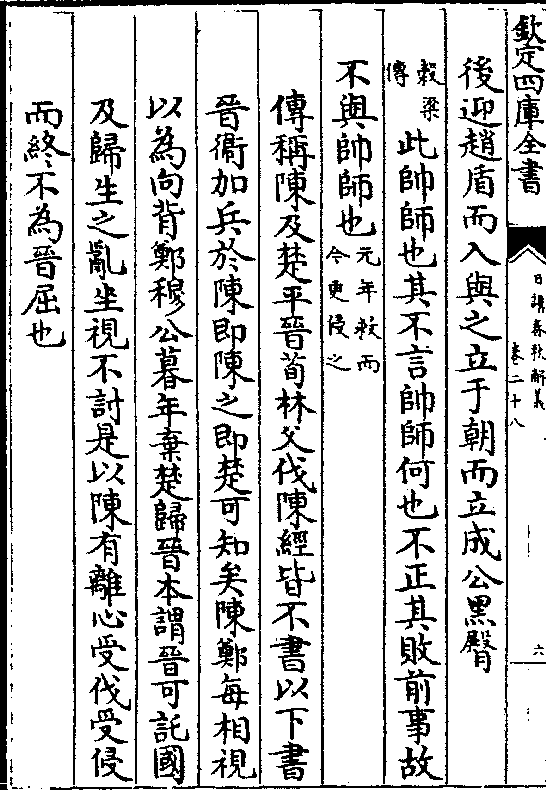 欽定四庫全書
日講春秋解義
卷二十八
六
後迎趙盾而入與之立于朝而立成公黑臀
穀梁
傳
此帥師也其不言帥師何也不正其敗前事故
不與帥師也
元年救而
今更侵之
傳稱陳及楚平晉荀林父伐陳經皆不書以下書
晉衞加兵於陳即陳之即楚可知矣陳鄭每相視
以為向背鄭穆公暮年棄楚歸晉本謂晉可託國
及歸生之亂坐視不討是以陳有離心受伐受侵
而終不為晉屈也